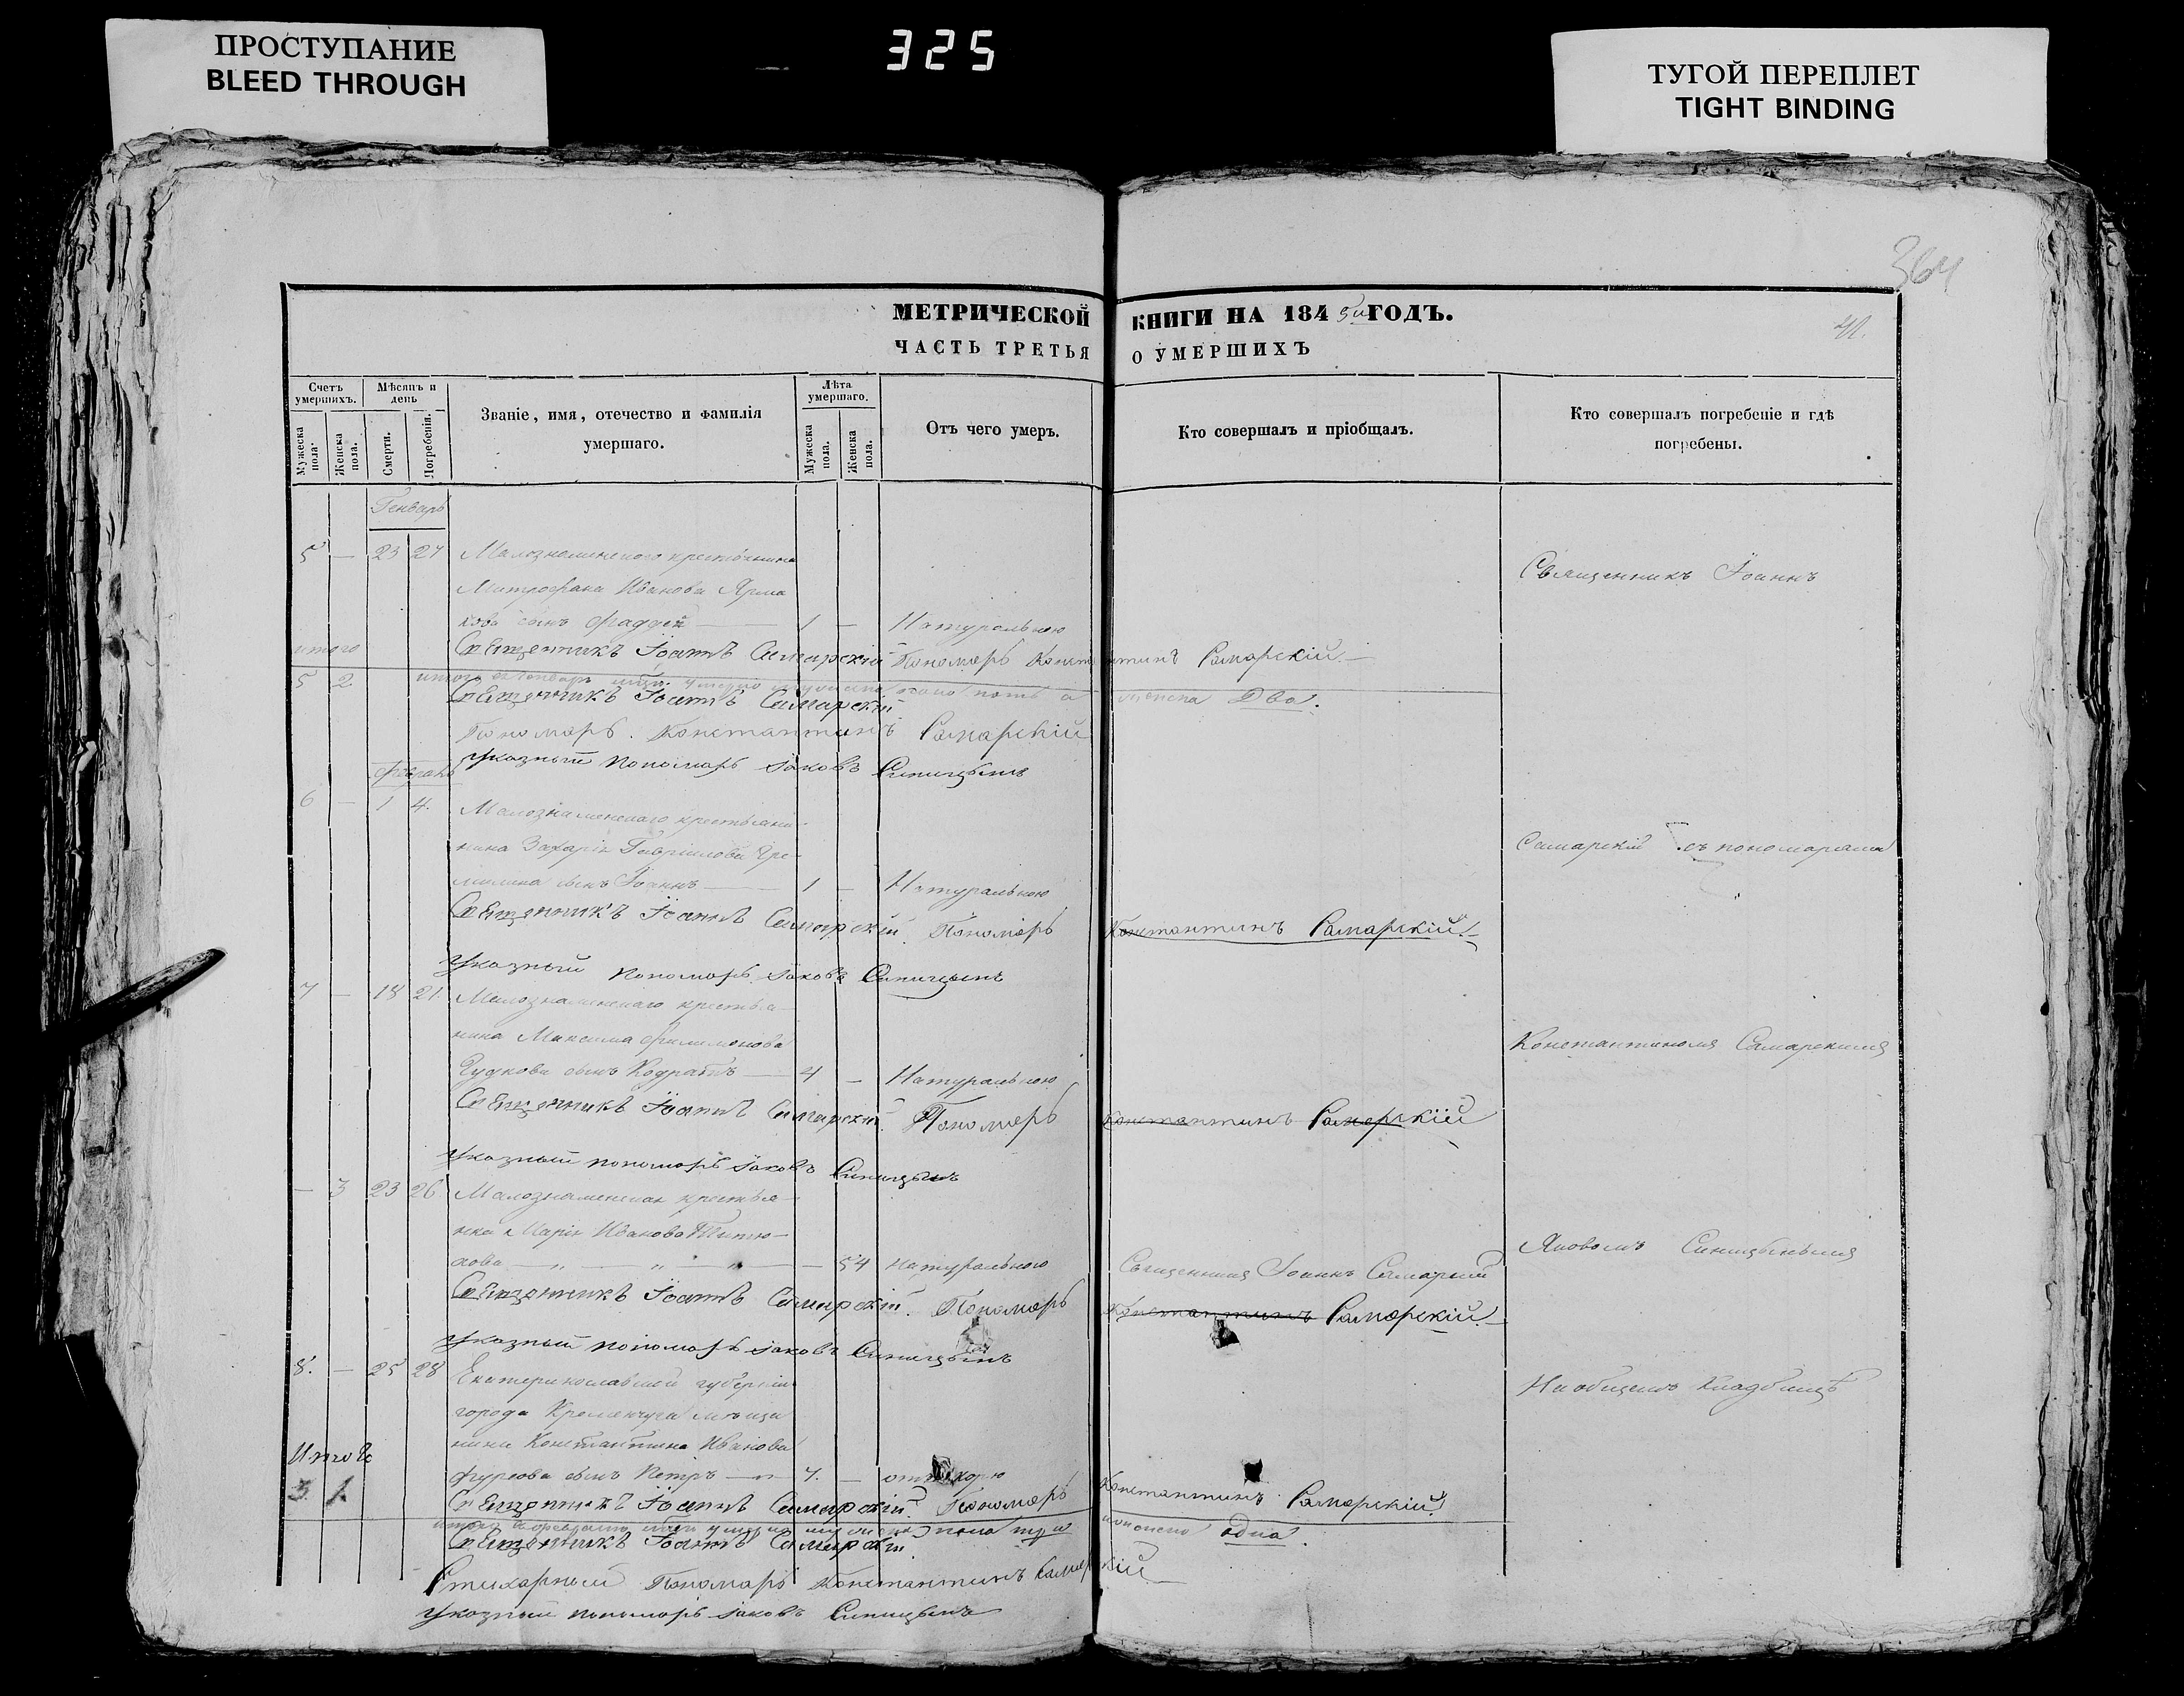 ПРОСТУПАНИЕ
BLEED THROUGH
325
ТУГОЙ ПЕРЕПЛЕТ
TIGHT BINDING
364
МЕТРИЧЕСКОЙ КНИГИ НА 1845й ГОДЪ.
ЧАСТЬ ТРЕТЬЯ О УМЕРШИХЪ
Счетъ умершихъ.
Мужеска пола.
Женска пола.
Мѣсяцъ и день
Смерти.
Погребенія.
Званіе, имя, отечество и фамилія
умершаго.
Лѣта умершаго.
Мужеска пола.
Женска пола.
Отъ чего умеръ.
Кто совершалъ и пріобщалъ.
Кто совершалъ погребеніе и гдѣ
погребены.
Генварь
5 — 23 27 Малознаменскаго крестьянина
Митрофана Иванова Ярма
кова сынъ Фаддей — 1 — Натуральною
Священникъ Іоаннъ
Священникъ Іоаннъ Самарскій Пономарь Константинъ Самарскій
итого
5 2 итого въ Генварѣ умерло мужеска пола пять а женска два.
Священникъ Іоаннъ Самарскій
Пономарь Константинъ Самарскій
Указный пономарь Іаковъ Синицынъ
Февраль
6 — 1 4. Малознаменскаго крестьяни
нина Захарія Гавріилова
сынъ Іоаннъ — 1 — Натуральною
Самарскій съ пономарями
Священникъ Іоаннъ Самарскій Пономарь Константинъ Самарскій
Указный пономарь Іаковъ Синицынъ
7 — 18 21. Малознаменскаго крестья
нина Максима Филимонова
Гудкова сынъ Кодратъ — 4 — Натуральною
Константиномъ Самарскимъ
Священникъ Іоаннъ Самарскій. Пономарь Константинъ Самарскій
Указный пономарь Іаковъ Синицынъ
— 3 23 26 Малознаменская крестья
нка Марія Иванова
кова — „ — „ — — 54 Натуральною Священникъ Іоаннъ Самарскій
Яковомъ Синицынымъ
Священникъ Іоаннъ Самарскій. Пономарь Константинъ Самарскій
Указный пономарь Іаковъ Синицынъ
8. — 25 28 Екатеринославской губерніи
города Кременчуга мѣща
нина Константина Иванова
Фурсова сынъ Петръ — 7. —
На общемъ кладбищѣ
Итого
3. 1.
Священникъ Іоаннъ Самарскій. Пономарь Константинъ Самарскій
итого въ Февралѣ умерло мужеска пола три женска одна.
Священникъ Іоаннъ Самарскій
Стихарный Пономарь Константинъ Самарскій
Указный пономарь Іаковъ Синицынъ